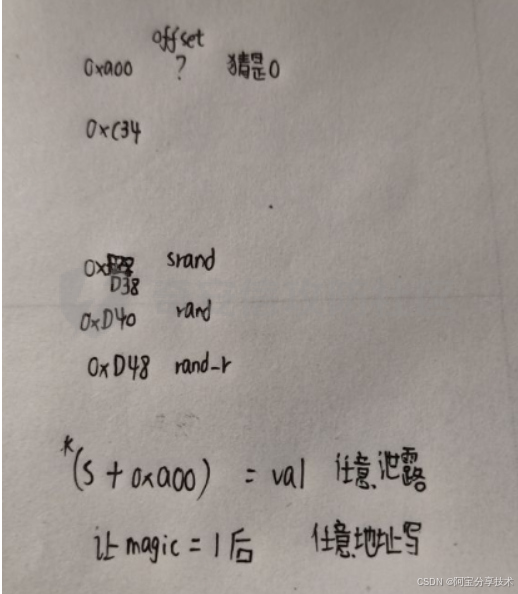 offset
0xa00 ? 猜是0
0xC34
0x srand
D38
0xD40 rand
0xD48 rand_r
*(s + 0xa00) = val 任意泄露
让 magic = 1 后 任意地址写
CSDN @阿宝分享技术